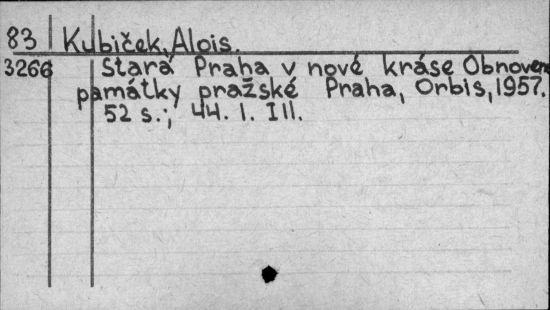 83 Kubiček, Alois.
3266 Stará Praha v nové kráse Obnoven
památky pražské Praha, Orbis, 1957.
52 s.; 44. l. Ill.